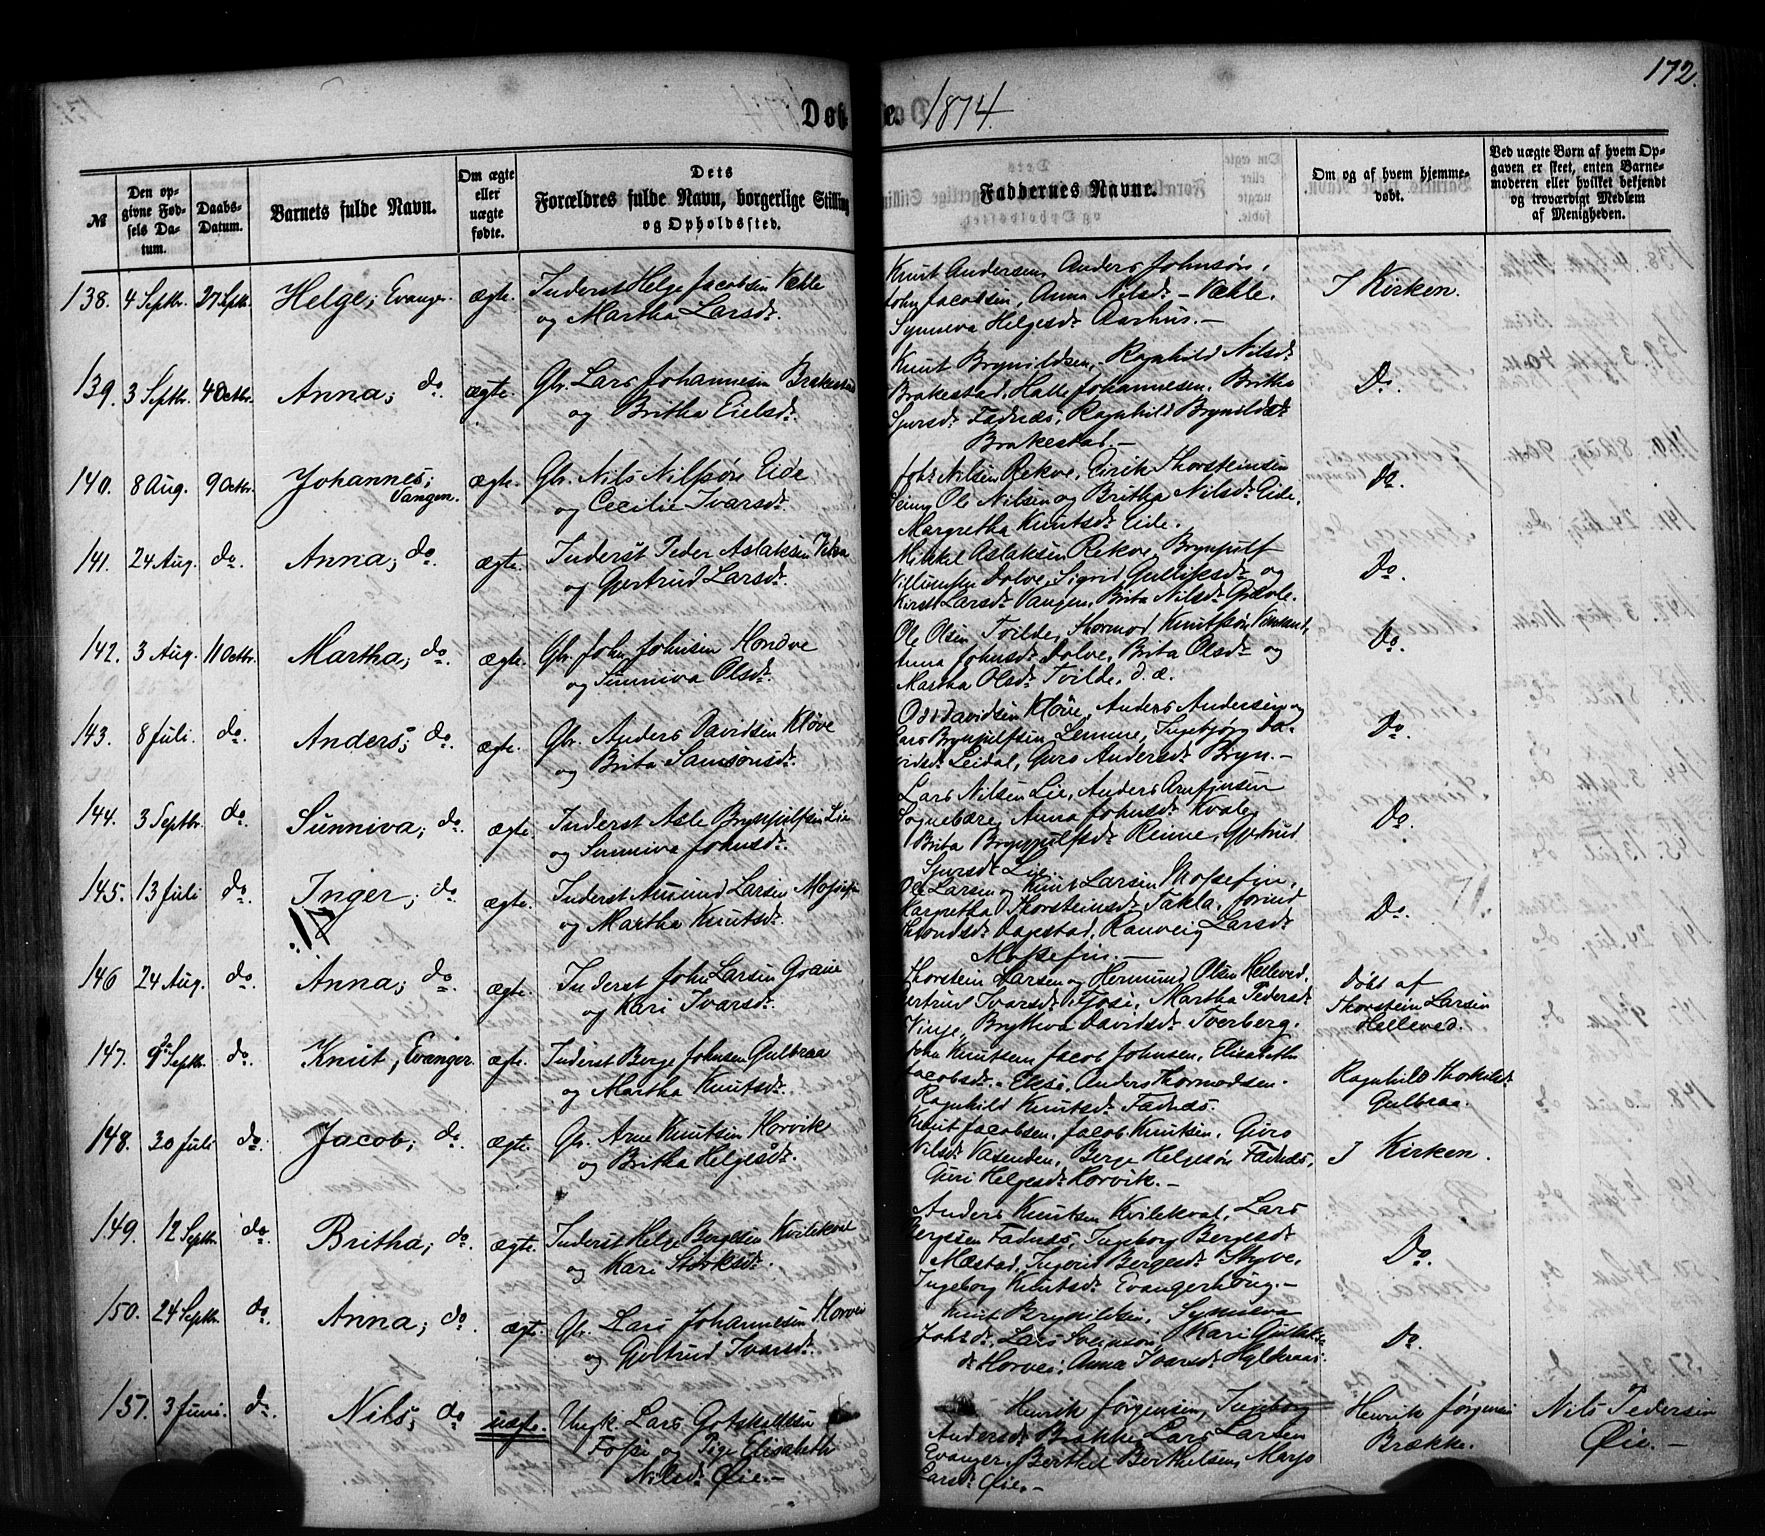 172.
Døbte. 1874.
№
Den opgivne Fødsels Datum.
Daabs-Datum.
Barnets fulde Navn.
Om ægte eller uægte fødte.
Dets Forældres fulde Navn, borgerlige Stilling og Opholdssted.
Faddernes Navne.
Om og af hvem hjemmedøbt.
Ved uægte Børn af hvem Opgaven er skeet, enten Barnemoderen eller hvilket bekjendt og troværdigt Medlem af Menigheden.
138. 4 Septbr. 27 Septbr. Helge; Evanger. ægte. Inderst Helge Jacobsen Væhle
og Martha Larsdr.
Knut Andersen, Anders Johnsøn,
John Jacobsen, Anna Nilsdr - Væhle.
Synneva Helgesdr Aarhus. -
I Kirken.
139. 3 Septbr. 4 Octbr. Anna; do. ægte. Gbr. Lars Johannesen Brakestad
og Britha Eielsdr.
Knut Brynildsen, Ragnhild Nilsdr
Brakestad, Halle Johannesen, Britha
Sjursdr Fadnæs, Ragnhild Brynildsdr
Brakestad. -
Do.
140. 8 Aug. 9 Octbr. Johannes; Vangen. ægte. Gbr. Nils Nilssøn Eide
og Cecilie Ivarsdr.
Johs Nilsen Rekve, Eirik Thorsteinsen
Seim, Ole Nilsen og Britha Nilsdr Eide,
Margretha Knutsdr Eide.
Do.
141. 24 Aug. do. Anna; do. ægte. Inderst Peder Aslaksen
og Gjertrud Larsdr.
Mikkel Aslaksen Rekve, Brynjulf
Dolve, Sigrid Gulliksdr og
Kirsti Larsdr Vangen, Brita Nilsdr Gjävle.
Do.
142. 3 Aug. 11 Octbr. Martha; do. ægte. Gbr. John Johnsen Hondve
og Sunniva Olsdr.
Ole Olsen Tvilde, Thormod Knutsøn
Anna Johnsdr Dolve, Brita Olsdr og
Martha Olsdr Tvilde, d. æ.
Do.
143. 8 Juli. do. Anders; do. ægte. Gbr. Anders Davidsen Kløve
og Brita Samsonsdr.
Odd Davidsen Kløve, Anders Andersen og
Lars Brynjulfsen Lemme, Ingebjørg Da-
vidsdr Leidal, Guro Andersdr Bryn. -
Do.
144. 3 Septbr. do. Sunniva; do. ægte. Inderst Asle Brynjulfsen Lie
og Sunniva Johnsdr.
Lars Nilsen Lie, Anders Arnfinsen
Sognebære, Anna Johnsdr Kvale,
Brita Brynjulfsdr Renne, Gjertrud
Sjursdr Lie.
Do.
145. 13 Juli do. Inger; do. ægte. Inderst Amund Larsen Mossefin
og Martha Knutsdr.
17
Ole Larsen og Knut Larsen Mossefin,
Margretha Thorsteinsdr Takla, Jorind
Throndsdr Dagestad, Ranveig Larsdr
Mossefin. -
Do.
146 24 Aug. do. Anna; do. ægte. Inderst John Larsen Graue
og Kari Ivarsdr.
Thorstein Larsen og Hermund Olsen Helleved,
Gertrud Ivarsdr Gjosi, Martha Pedersdr
Vinje, Brytteva Davidsdr Tverberg.
Døbt af
Thorstein Larsen
Helleved.
147. 9 Septbr. do. Knut, Evanger. ægte. Inderst Berge Johnsen Gulbraa
og Martha Knutsdr.
John Knutsen, Jacob Johnsen, Elisabeth
Jacobsdr - Eksi, Anders Thormodsen.
Ragnhild Knutsdr Fadnæs.
Ragnhild Thorkildsdr
Gulbraa.
148. 30 Juli do. Jacob; do. ægte. Gbr. Arne Knutsen Horvik
og Britha Helgesdr.
Knut Jacobsen, Jacob Knutsen, Guro
Nilsdr Vasenden, Berge Helgesøn Fadnæs,
Guri Helgesdr Horvik. -
I Kirken.
149. 12 Septbr. do. Britha; do. ægte. Inderst Helge Bergesen Kvilekval
og Kari Størksdr.
Anders Knutsen Kvilekval, Lars
Bergesen Fadnæs, Ingeborg Bergesdr
Mæstad, Ingerid Bergesdr Styve,
Ingeborg Knutsdr Evangerhoug. -
Do.
150. 24 Septbr. do. Anna; do. ægte. Gbr. Lars Johannesen Horvei
og Gjertrud Ivarsdr.
Knut Brynildsen, Synneva
Johsdr, Lars Svensøn, Kari Gulleiks-
dr Horvei, Anna Ivarsdr Hyldraas.
Do.
151. 3 Juni. do. Nils; do uægte. Ungk. Lars Gotskalksen
Fosse og Pige Elisabeth
Nilsdr Øie. -
Henrik Jørgensen, Ingeborg
Andersdr Brække, Lars Larsen
Evanger, Berthel Berthelsen, Marjo
Larsdr Øie. -
Henrik Jørgensen
Brække.
Nils Pedersen
Øie. -